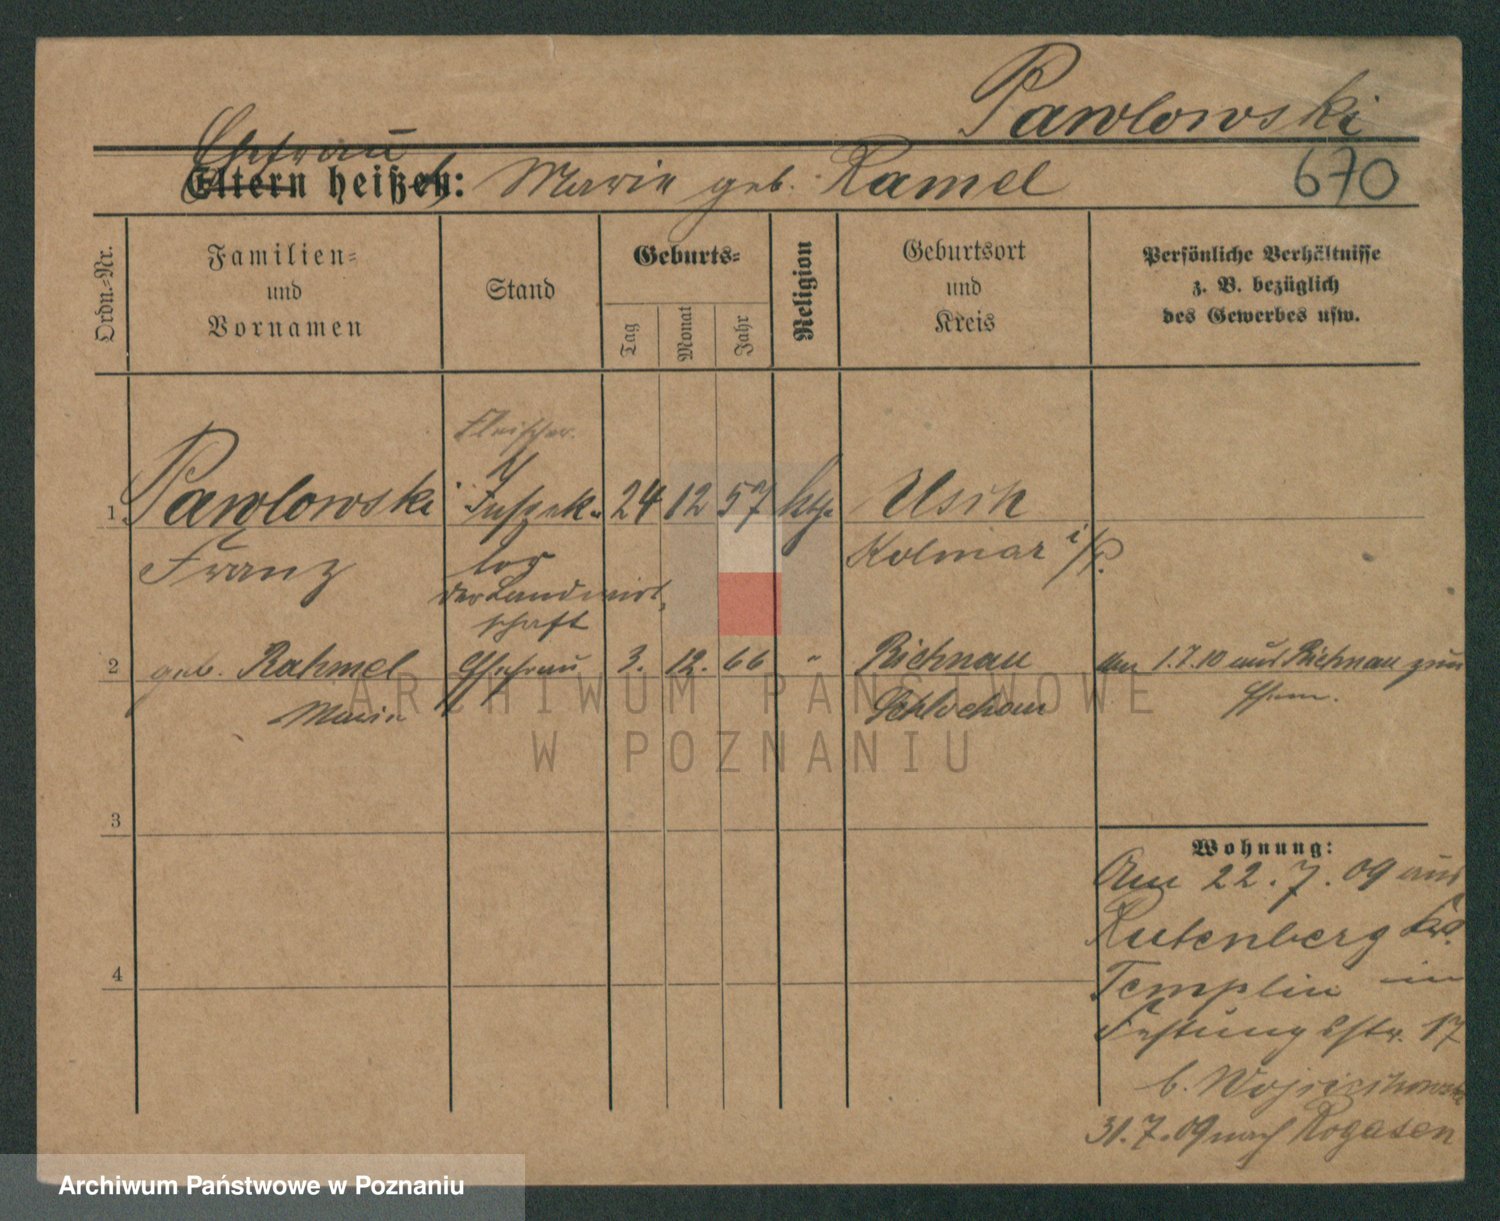 Pawlowski
Ehefrau
Eltern heißen: Marie geb. Ramel 670
Ordn.-Nr.
Familien-
und
Vornamen
Stand
Geburts-
Tag
Monat
Jahr
Religion
Geburtsort
und
Kreis
Persönliche Verhältnisse
z. B. bezüglich
des Gewerbes usw.
Fleischer.
1 Pawlowski Inspek- 24 12 57 kth. Usch
Franz tor Kolmar i/P.
der Landwirt-
schaft
2 geb. Rahmel Ehefrau 3. 12. 66 " Richnau Am 1.7.10 aus Richnau zum
Marie Schlochau Ehem.
ARCHIWUM PAŃSTWOWE
W POZNANIU
3
Wohnung:
Am 22.7.09 aus
Rutenberg Krs.
Templin in
4
Festungsstr. 17
b.
31.7.09 nach Rogasen
Archiwum Państwowe w Poznaniu